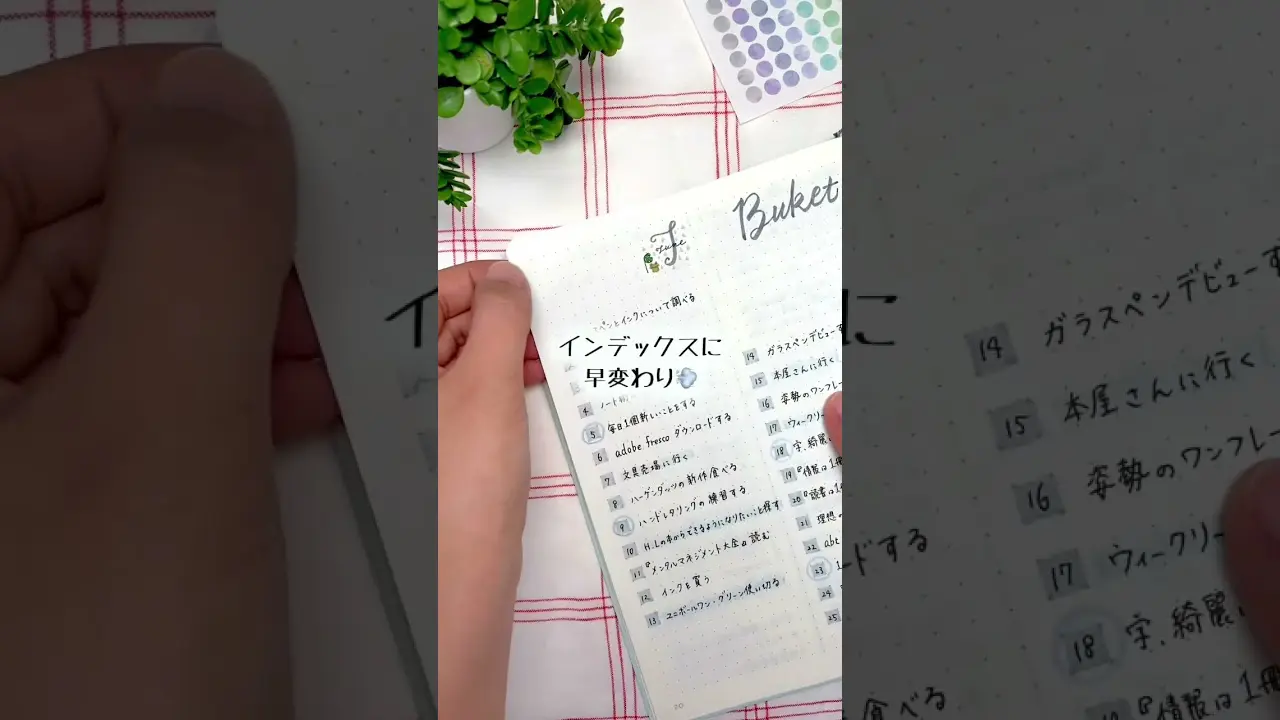 Buket
J
June
ペンとインクについて調べる
インデックスに
早変わり
4 ノート
5 毎日1個新しいことをする
6 adobe fresco ダウンロードする
7 文具売場に行く
8 ハーゲンダッツの新作食べる
9 ハンドレタリングの練習する
10 H.Lの本からできるようになりたいこと探す
11 『メンタルマネジメント大全』読む
12 インクを買う
13 ユニボールワン・グリーン使い切る
14 ガラスペンデビューす
15 本屋さんに行く
16 姿勢のワンフレー
17 ウィークリー
18 字、綺麗
19 『情報は1冊
20 『読書は1
21 理想の
22
23
24
25
20
に
14 ガラスペンデビュー
15 本屋さんに行く
16 姿勢のワンフレ
17 ウィークリー
18 字、綺麗
ドする
『情報は1冊
食べる
イ